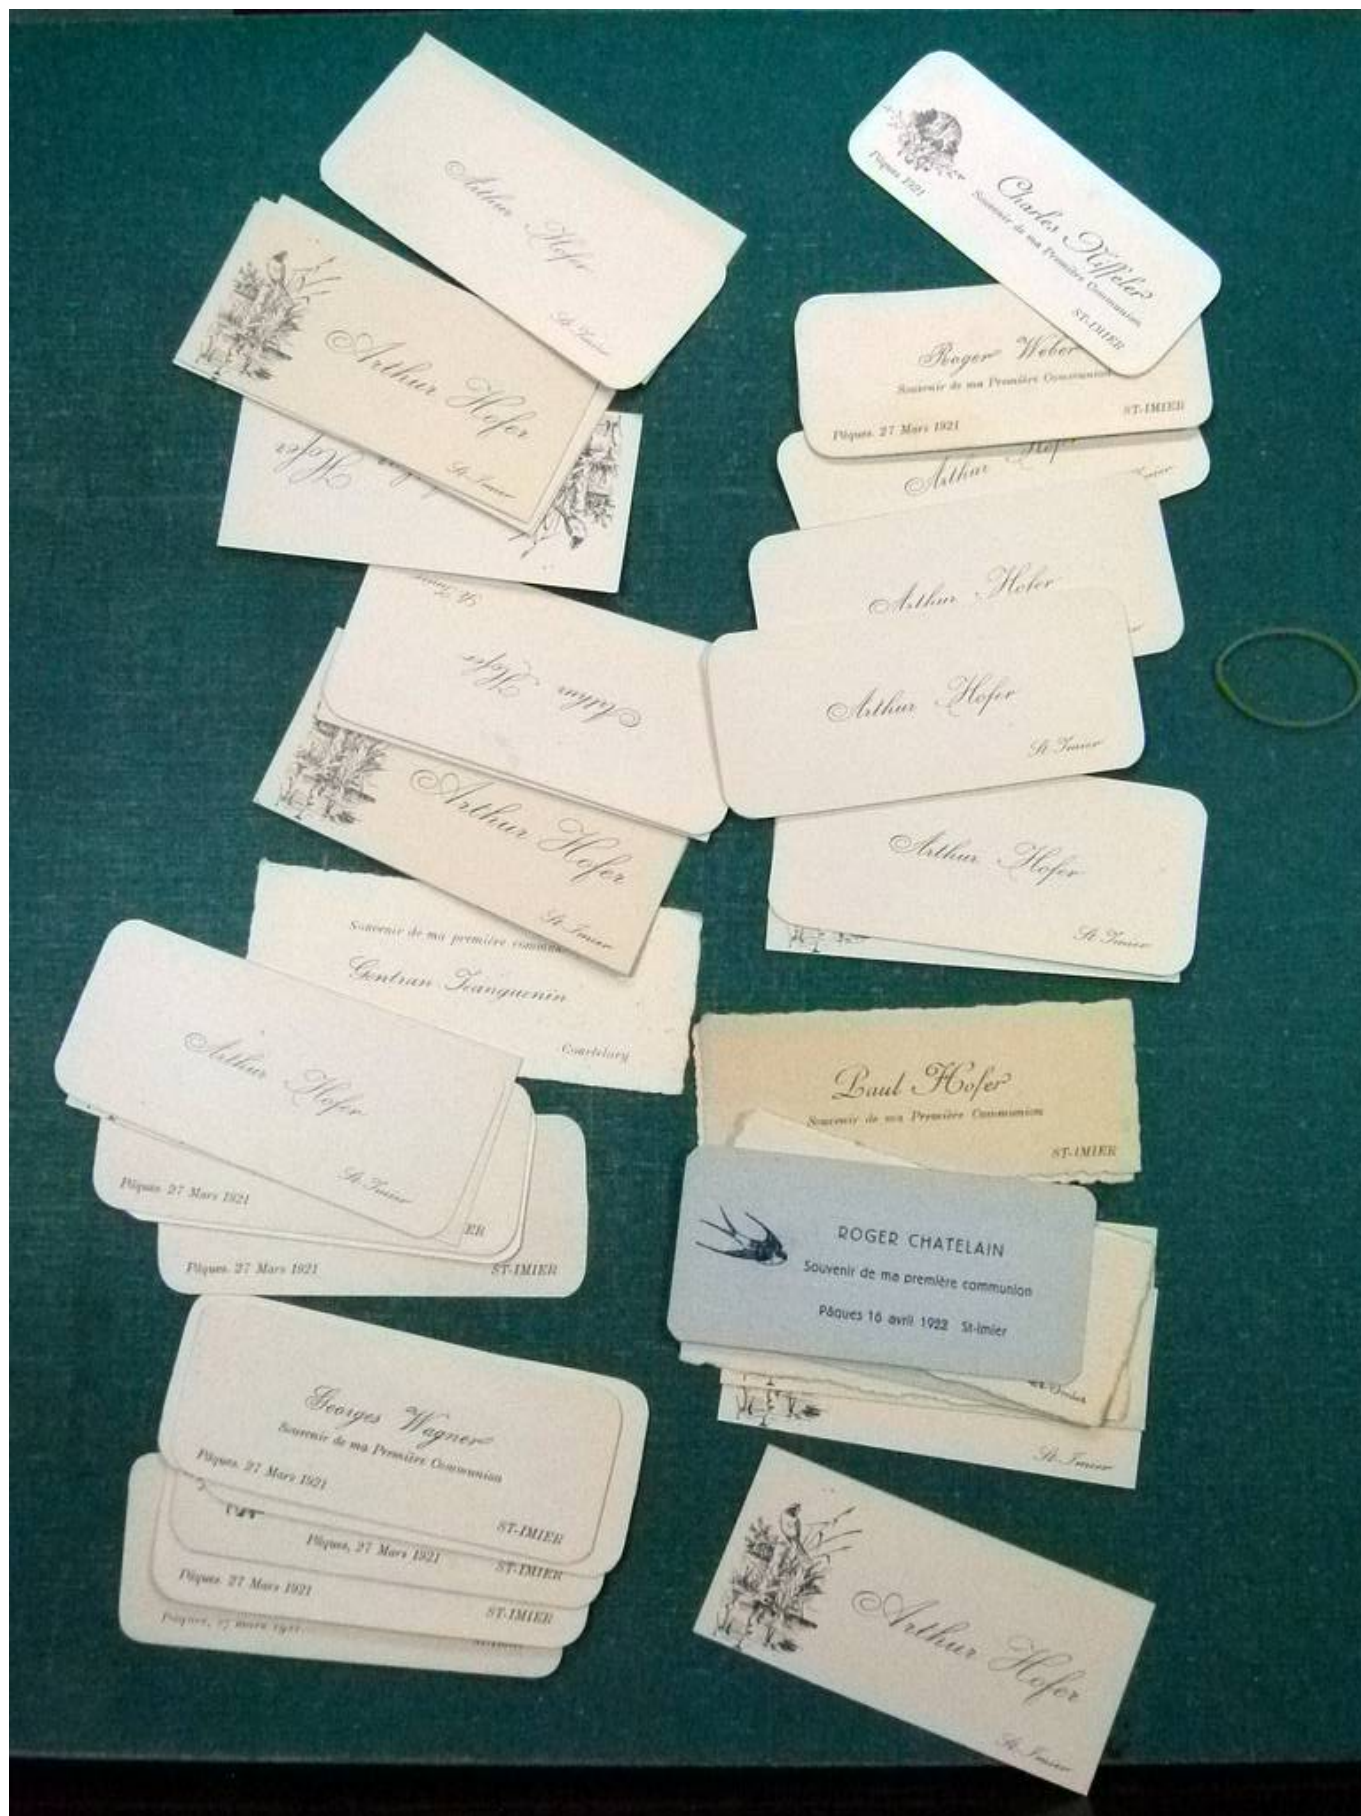 Arthur Hofer
St Imier
Arthur Hofer
St Imier
Hofer
St Imier
Arthur Hofer
Arthur Hofer
St Imier
Souvenir de ma première
Gontran Jeanguenin
Courtelary
Arthur Hofer
St Imier
Pâques. 27 Mars 1921
ER
Pâques. 27 Mars 1921
ST-IMIER
Georges Wagner
Souvenir de ma Première Communion
Pâques. 27 Mars 1921
ST-IMIER
Pâques, 27 Mars 1921
ST-IMIER
Pâques. 27 Mars 1921
ST-IMIER
Pâques, 27 mars 1921.
Pâques 1921
Charles Kiffeler
Souvenir de ma Première Communion
ST-IMIER
Roger Weber
Souvenir de ma Première Communion
ST-IMIER
Pâques. 27 Mars 1921
Arthur Hofer
Arthur Hofer
Arthur Hofer
St Imier
Arthur Hofer
St Imier
Paul Hofer
Souvenir de ma Première Communion
ST-IMIER
ROGER CHATELAIN
Souvenir de ma première communion
Pâques 16 avril 1922 St-Imier
St Imier
Arthur Hofer
St Imier